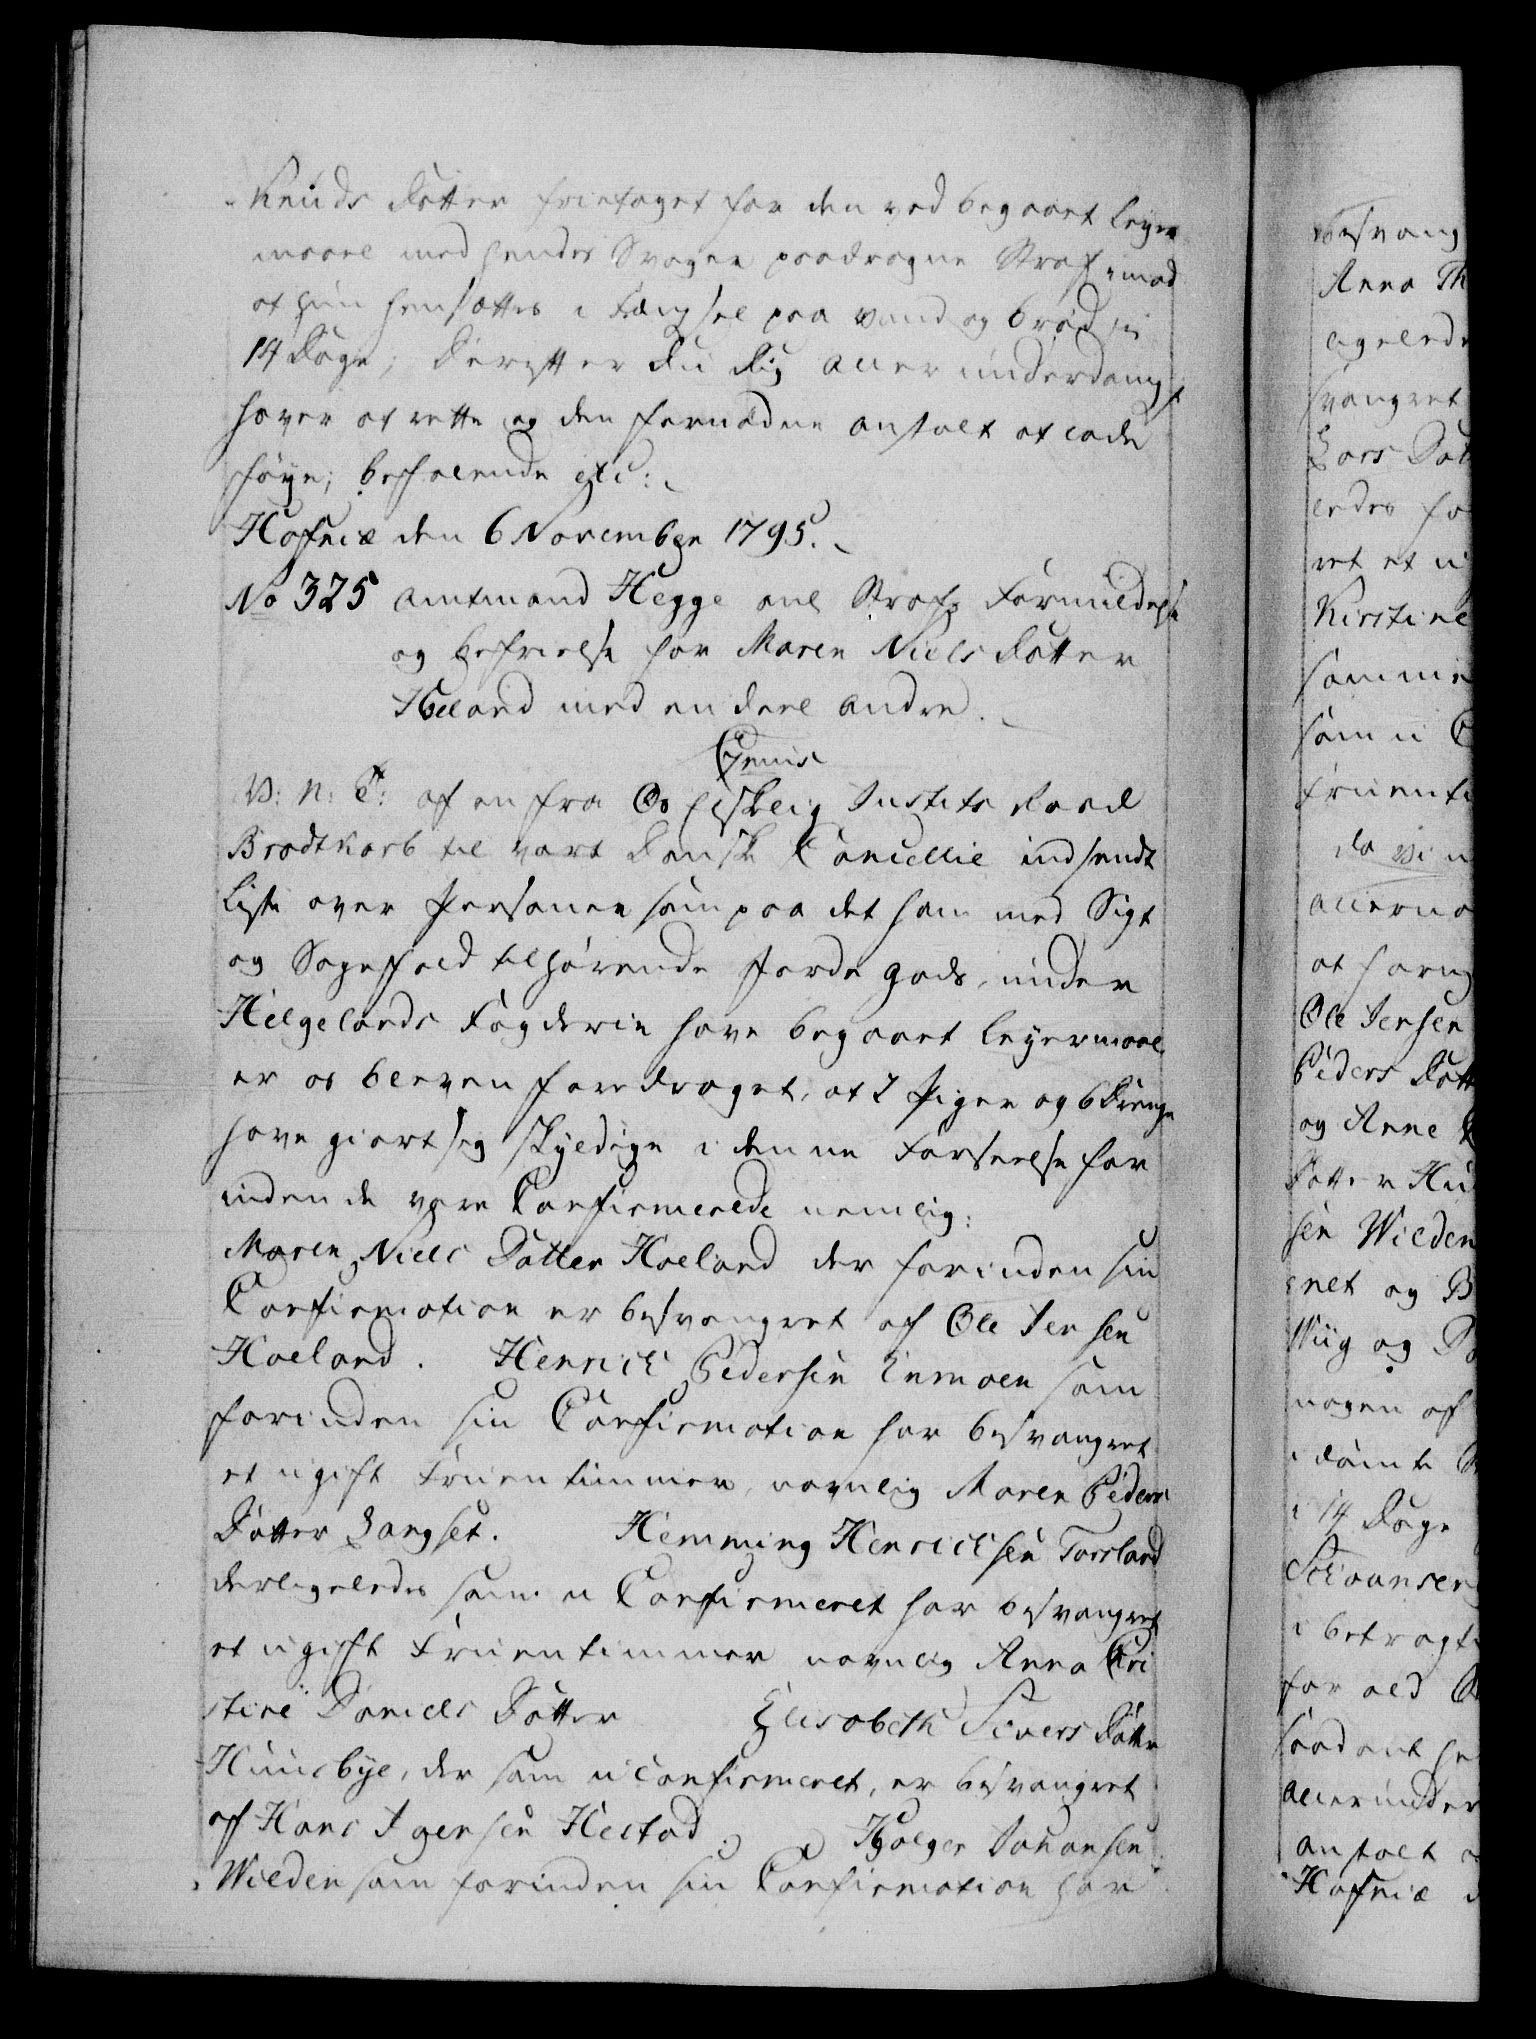 Knuds Datter fritaget for den ved begaaet Leyer
maal med hendes Svoger paadragne Straf, mod
at hun hensættes i Fængsel paa vand og brød i
14 Dage; Derefter du dig allerunderdanigst
haver at rette og den fornødne anstalt at lade
føye; befalende etc:
Hafniæ den 6 November 1795.
No 325 Amtmand Hegge anl Strafs Formildelse
og befrielse for Maren Niels Datter
Høeland med en deel andre.
V: n: T: af en fra Os elskelig Justits Raad
Brodtkorb til vort Danske Cancellie indsendt
Liste over Personer som paa det ham med Sigt
og Sagefald tilhørende Jorde gods, under
Helgelands Fogderie have begaaet Leyermaal
er os bleven foredraget, at 2 Piger og 6 Drenge
have giort sig skyldige i denne Forseelse for
inden de vare Confirmerede nemlig:
Maren Niels Datter Hæeland der forinden sin
Confirmation er besvangret af Ole Jensen
Hæeland. Henrich Pedersen Enmoen som
forinden sin Confirmation har besvangret
et ugift Fruentimmer, navnlig Maren Peders
Datter Langset. Hemming Henrichsen Forsland
derligeledes som u Confirmeret har besvangret
et ugift Fruentimmer navnlig Anna Kri
stine Daniels Datter Elisabeth Sivers Datter
Huusbye, der som uconfirmeret, er besvangret
af Hans Igensen Hestad. Holger Johansen
Wilden som forinden sin Confirmation har
besvang
Anna Th
ligelede
svangret
Lars Dat
ledes ha
ret et u
Kirstine
samme
som u C
Fruenti
da vi u
allerna
at havng
Ole Jensen
Peders Datt
og Anne
Datter Hu
sen Wilden
gret og B
Wiig og D
nogen af
idømte
i 14 Dage
Johansen
i betragt
for ald
saadant he
allerunder
anstalt
Hafniæ d